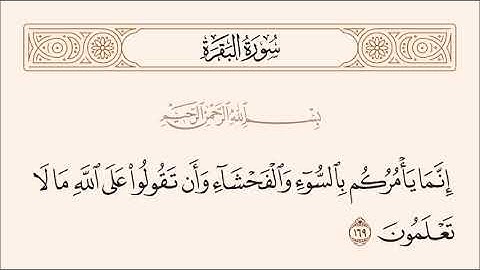 سُورَةُ الْبَقَرَةِ
بِسْمِ اللَّهِ الرَّحْمَٰنِ الرَّحِيمِ
إِنَّمَا يَأْمُرُكُم بِالسُّوٓءِ وَالْفَحْشَآءِ وَأَن تَقُولُوا۟ عَلَى اللَّهِ مَا لَا
تَعْلَمُونَ ١٦٩